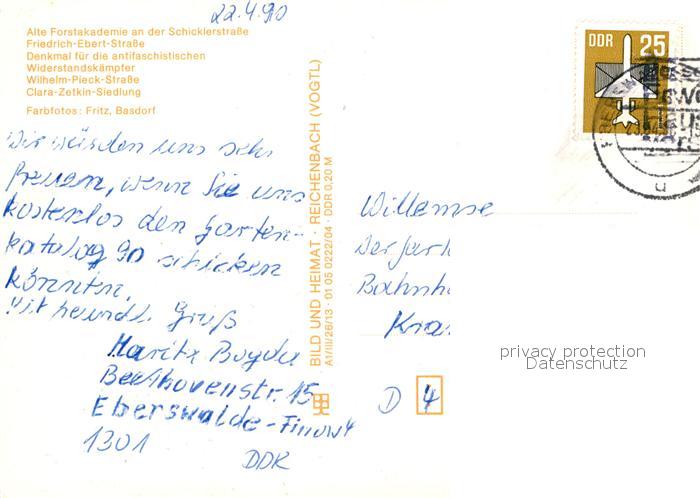 22.4.90
Alte Forstakademie an der Schicklerstraße
Friedrich-Ebert-Straße
Denkmal für die antifaschistischen
Widerstandskämpfer
Wilhelm-Pieck-Straße
Clara-Zetkin-Siedlung
Farbfotos: Fritz, Basdorf
Wir würden uns sehr
freuen, wenn Sie uns
kostenlos den Garten-
katalog 90 schicken
könnten.
Mit freundl. Gruß
Beethovenstr. 15
Eberswalde-Finow 4
1301
DDR
BILD UND HEIMAT · REICHENBACH (VOGTL)
A1/III/26/13 · 01 05 0222/04 · DDR 0,20 M
DDR 25
Willemse
Der
Bahnh
Kra
D 4
privacy protection
Datenschutz